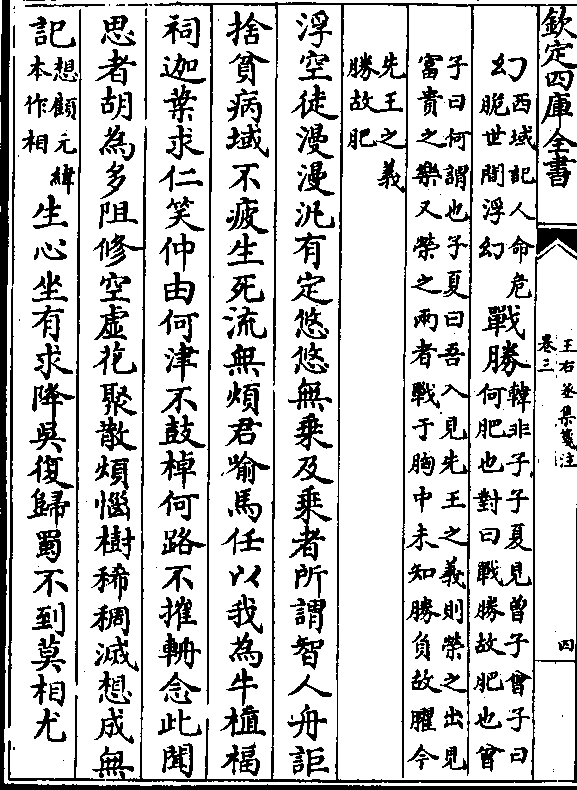 欽定四庫全書
王右丞集箋注
卷三
四
幻西域記人命危
脆世間浮幻
戰勝韓非子子夏見曾子曾子曰
何肥也對曰戰勝故肥也曾
子曰何謂也子夏曰吾入見先王之義則榮之出見
富貴之樂又榮之兩者戰于胸中未知勝負故臞今
先王之義
勝故肥
浮空徒漫漫汎有定悠悠無乗及乗者所謂智人舟詎
捨貧病域不疲生死流無煩君喻馬任以我為牛植福
祠迦葉求仁笑仲由何津不鼓棹何路不摧輈念此聞
思者胡為多阻修空虚花聚散煩惱樹稀稠滅想成無
記想顧元緯
本作相
生心坐有求降吳復歸蜀不到莫相尤